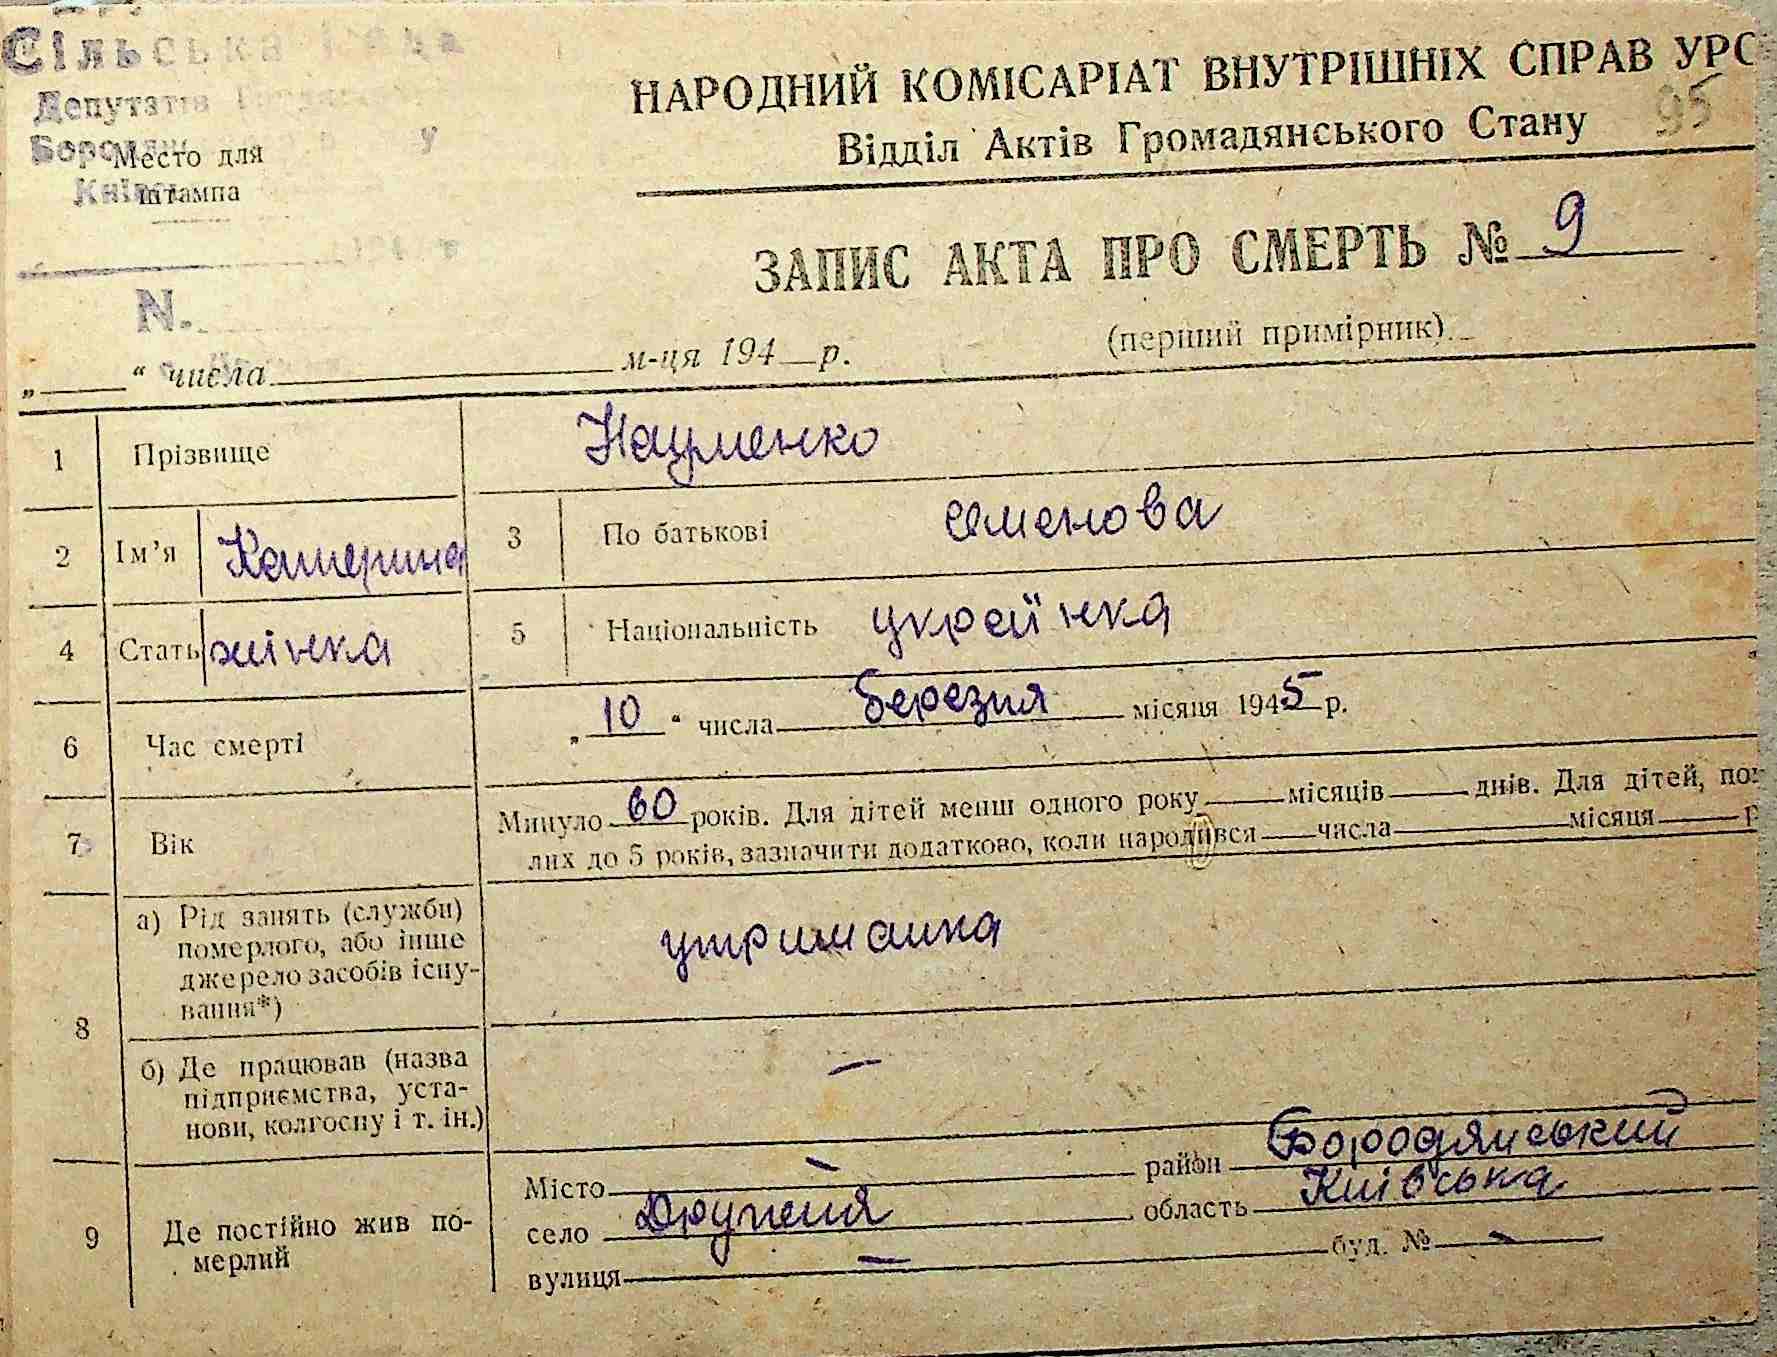 Сільська
Депутатів
Место для
штампа
НАРОДНИЙ КОМІСАРІАТ ВНУТРІШНІХ СПРАВ УРС
95
Відділ Актів Громадянського Стану
ЗАПИС АКТА ПРО СМЕРТЬ № 9
(перший примірник)
N.
„ “ числа м-ця 194 р.
1 Прізвище Науменко
2 Ім’я Катерина 3 По батькові Семенова
4 Стать жінка 5 Національність українка
6 Час смерті „10“ числа березня місяця 1945 р.
7 Вік Минуло 60 років. Для дітей менш одного року місяців днів. Для дітей, по
лих до 5 років, зазначити додатково, коли народився числа місяця р
8 а) Рід занять (служби)
померлого, або інше
джерело засобів існу-
вання*)
утриманка
б) Де працював (назва
підприємства, уста-
нови, колгоспу і т. ін.)
—
9 Де постійно жив по-
мерлий
Місто — район Бородянський
село Дружня область Київська
вулиця — буд. № —